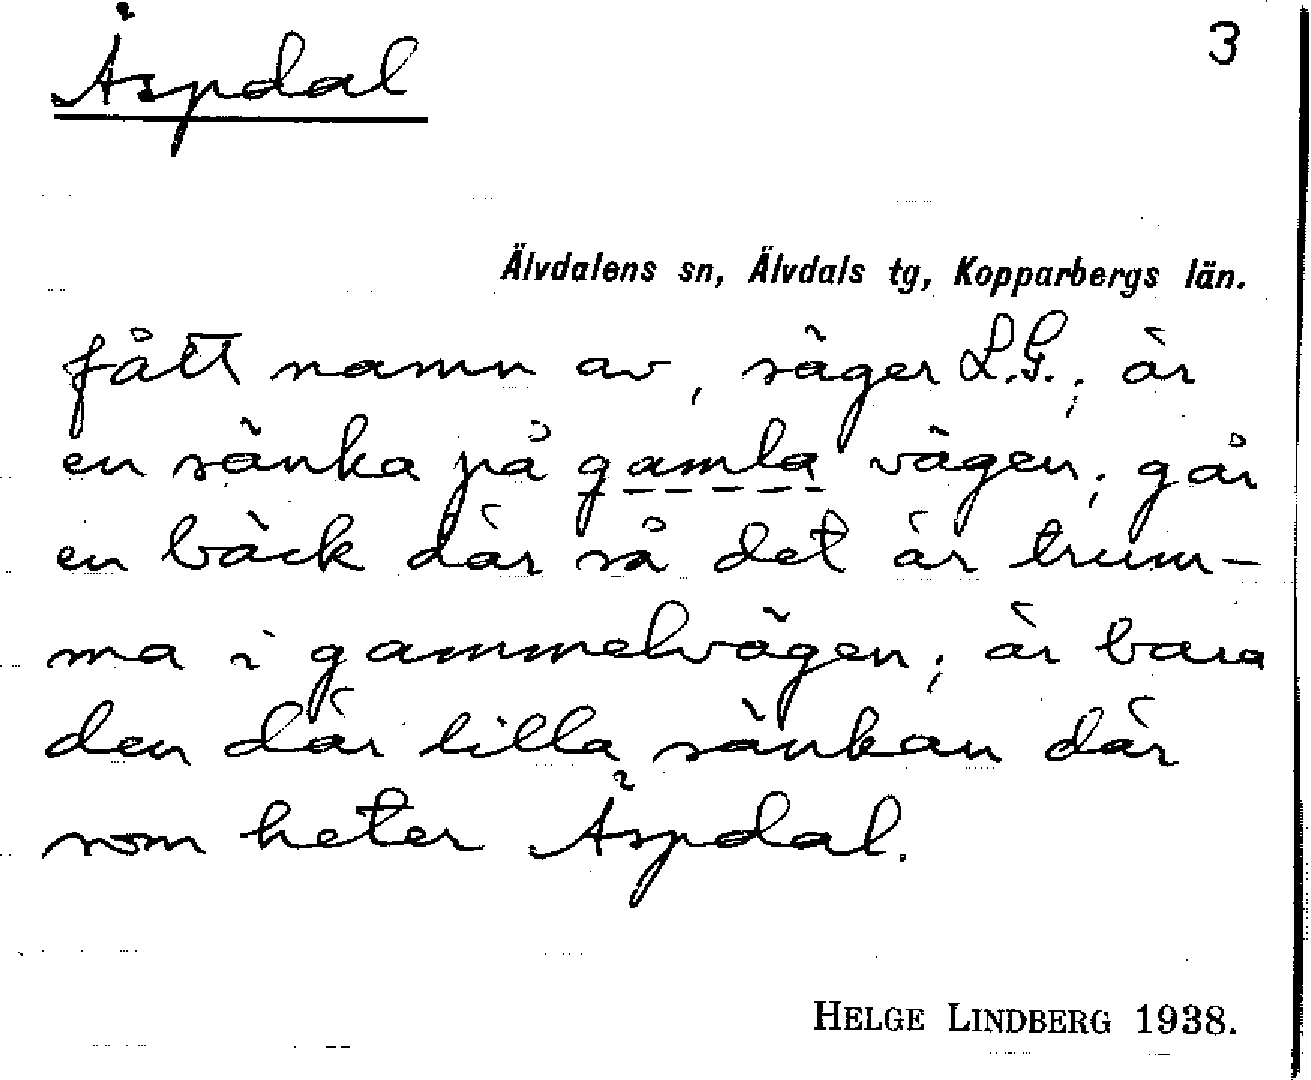 Åspdal
3
Älvdalens sn, Älvdals tg, Kopparbergs län.
fått namn av, säger L.G.; är
en sänka på gamla vägen; går
en bäck där så det är trum-
ma i gammelvägen; är bara
den där lilla sänkan där
som heter Åspdal.
HELGE LINDBERG 1938.